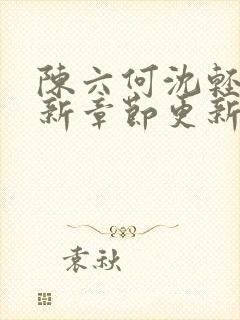 陳六何沈輕
新章節更新
袁秋